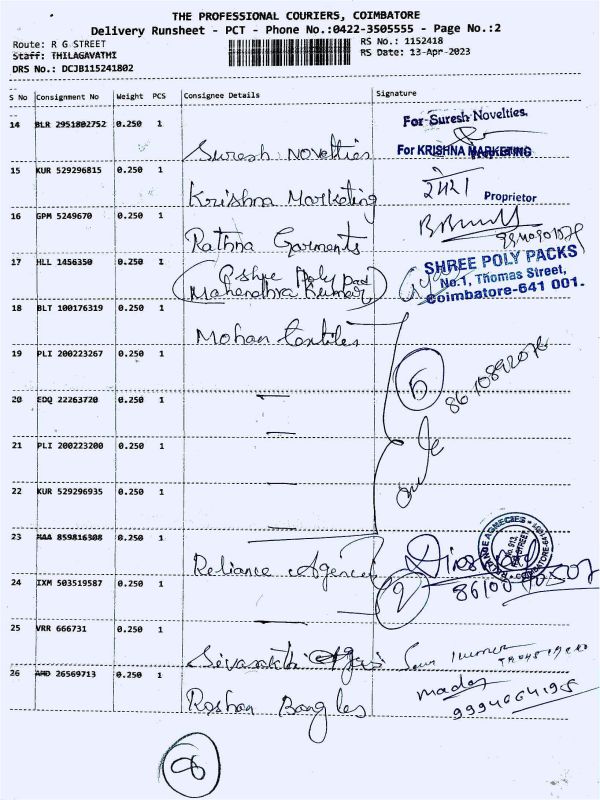 THE PROFESSIONAL COURIERS, COIMBATORE
Delivery Runsheet - PCT - Phone No.:0422-3505555 - Page No.:2
Route: R G STREET
RS No.: 1152418
Staff: THILAGAVATHI
RS Date: 13-Apr-2023
DRS No.: DCJB115241802
S No Consignment No Weight PCS Consignee Details Signature
14 BLR 2951802752 0.250 1 Suresh Novelties For Suresh Novelties.
For KRISHNA MARKETING
15 KUR 529296815 0.250 1 Krishna Marketing
Proprietor
16 GPM 5249670 0.250 1 Rathna Garments
17 HLL 1456350 0.250 1 Mahendhra Kumar
SHREE POLY PACKS
No.1, Thomas Street,
Coimbatore-641 001.
18 BLT 100176319 0.250 1 Mohan textiles
19 PLI 200223267 0.250 1
20 EDQ 22263720 0.250 1 —
21 PLI 200223200 0.250 1 —
22 KUR 529296935 0.250 1 —
23 MAA 859816308 0.250 1 Reliance Agencies
24 IXM 503519587 0.250 1 —
25 VRR 666731 0.250 1 Sivasakthi
26 AMD 26569713 0.250 1 Roshan Bangles
9994664195
8